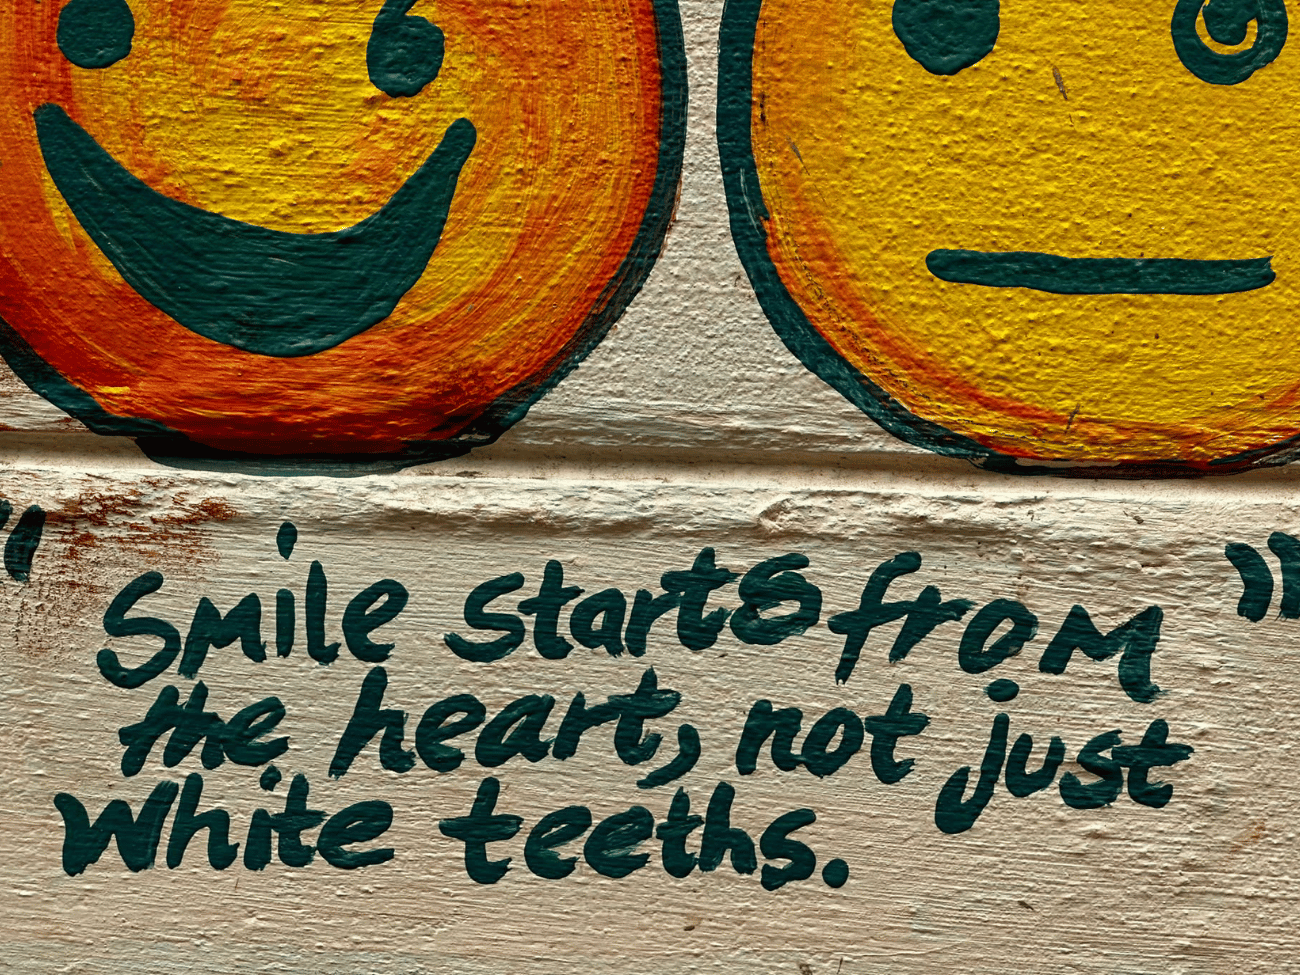 "Smile starts from"
the heart, not just
white teeths.